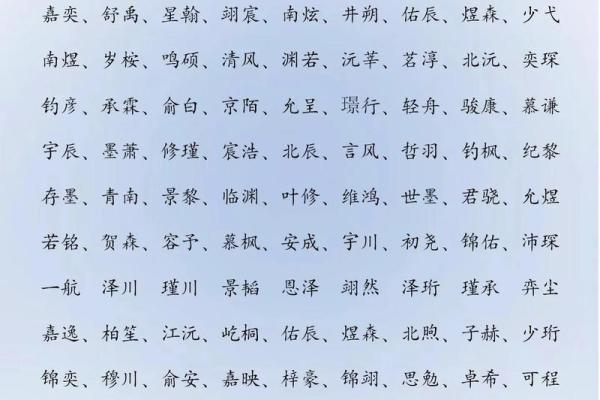 嘉奕、舒禹、星翰、翊宸、南炫、井朔、佑辰、煜森、少弋
南煜、岁桉、鸣硕、清风、渊若、沅莘、茗淳、北沅、奕琛
钧彦、承霖、俞白、京陌、允呈、璟行、轻舟、骏康、慕谦
宇辰、墨萧、修瑾、宸浩、北辰、言风、哲羽、钓枫、纪黎
存墨、青南、景黎、临渊、叶修、维鸿、世墨、君骁、允煜
若铭、贺森、容予、慕枫、安成、宇川、初尧、锦佑、沛琛
一航 泽川 瑾川 景韬 恩泽 翊然 泽珩 瑾承 弈尘
嘉逸、柏笙、江沅、屹桐、佑辰、煜森、北煦、子赫、少珩
锦奕、穆川、俞安、嘉映、梓豪、锦翊、思勉、卓希、可程